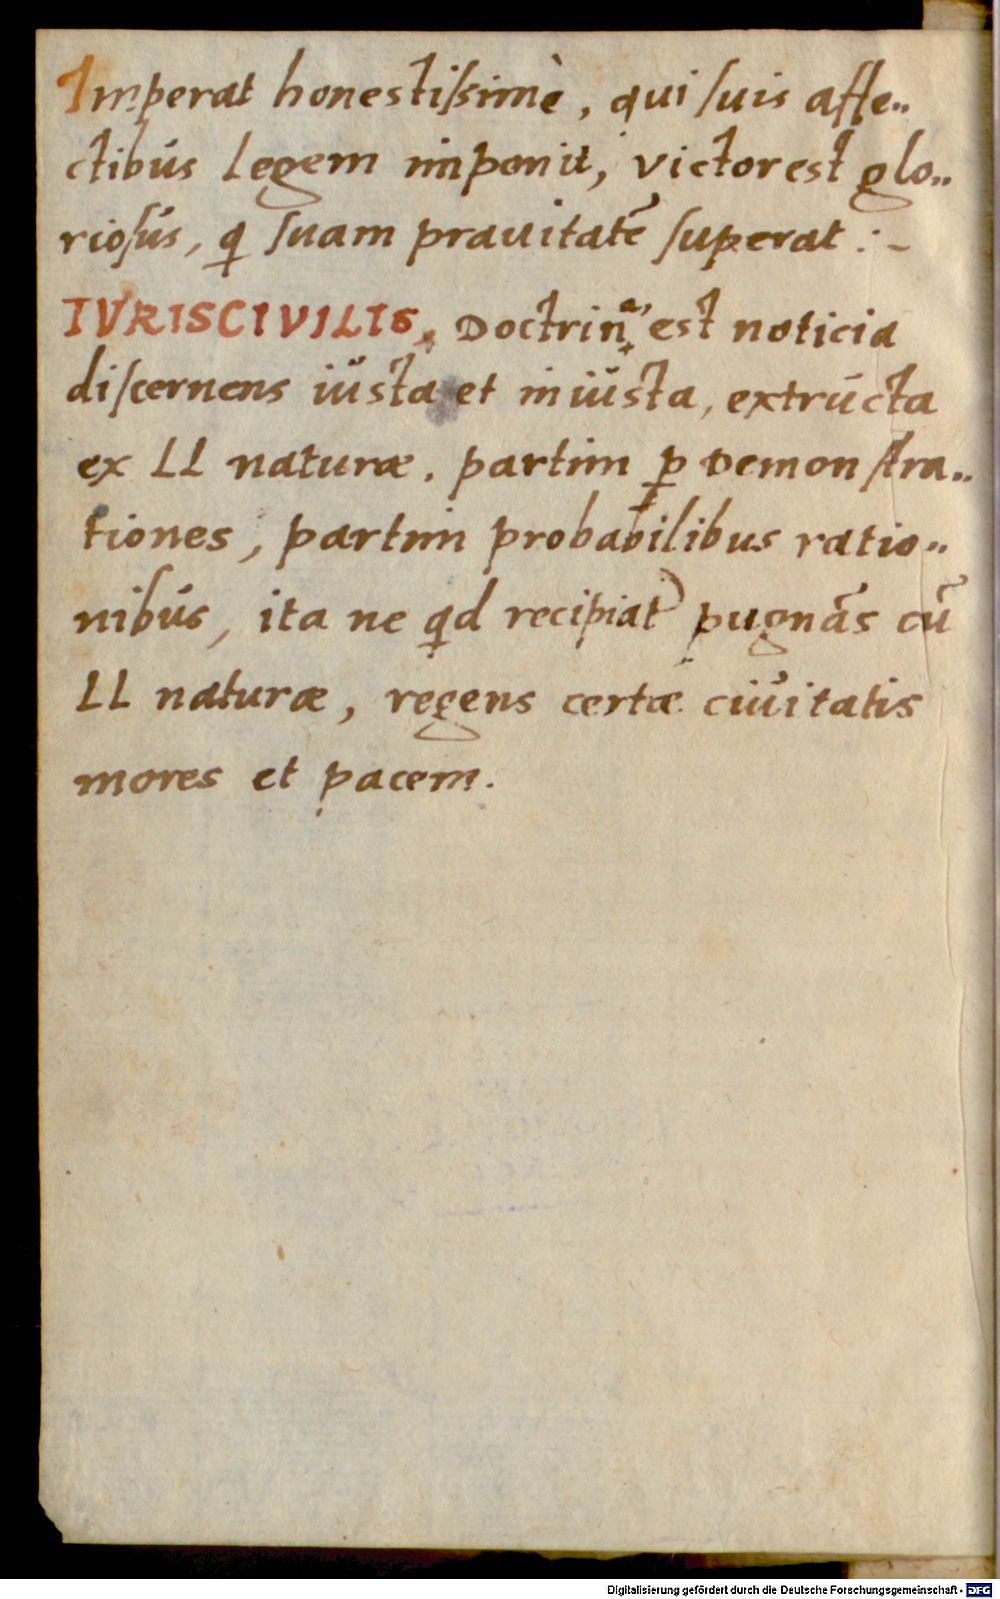 Imperat honestiſsimè, qui ſuis affe..
ctibus Legem imponit, victor est glo..
rioſus, q ſuam prauitatē ſuperat :~
IVRIS CIVILIS, Doctrinᵃ est noticia
diſcernens iusta et iniusta, extructa
ex LL naturæ. partim ꝑ Demonſtra..
tiones, partim probabilibus ratio..
nibus, ita ne qd recipiat pugnās cū
LL naturæ, regens certæ ciuitatis
mores et pacem.
Digitalisierung gefördert durch die Deutsche Forschungsgemeinschaft - DFG